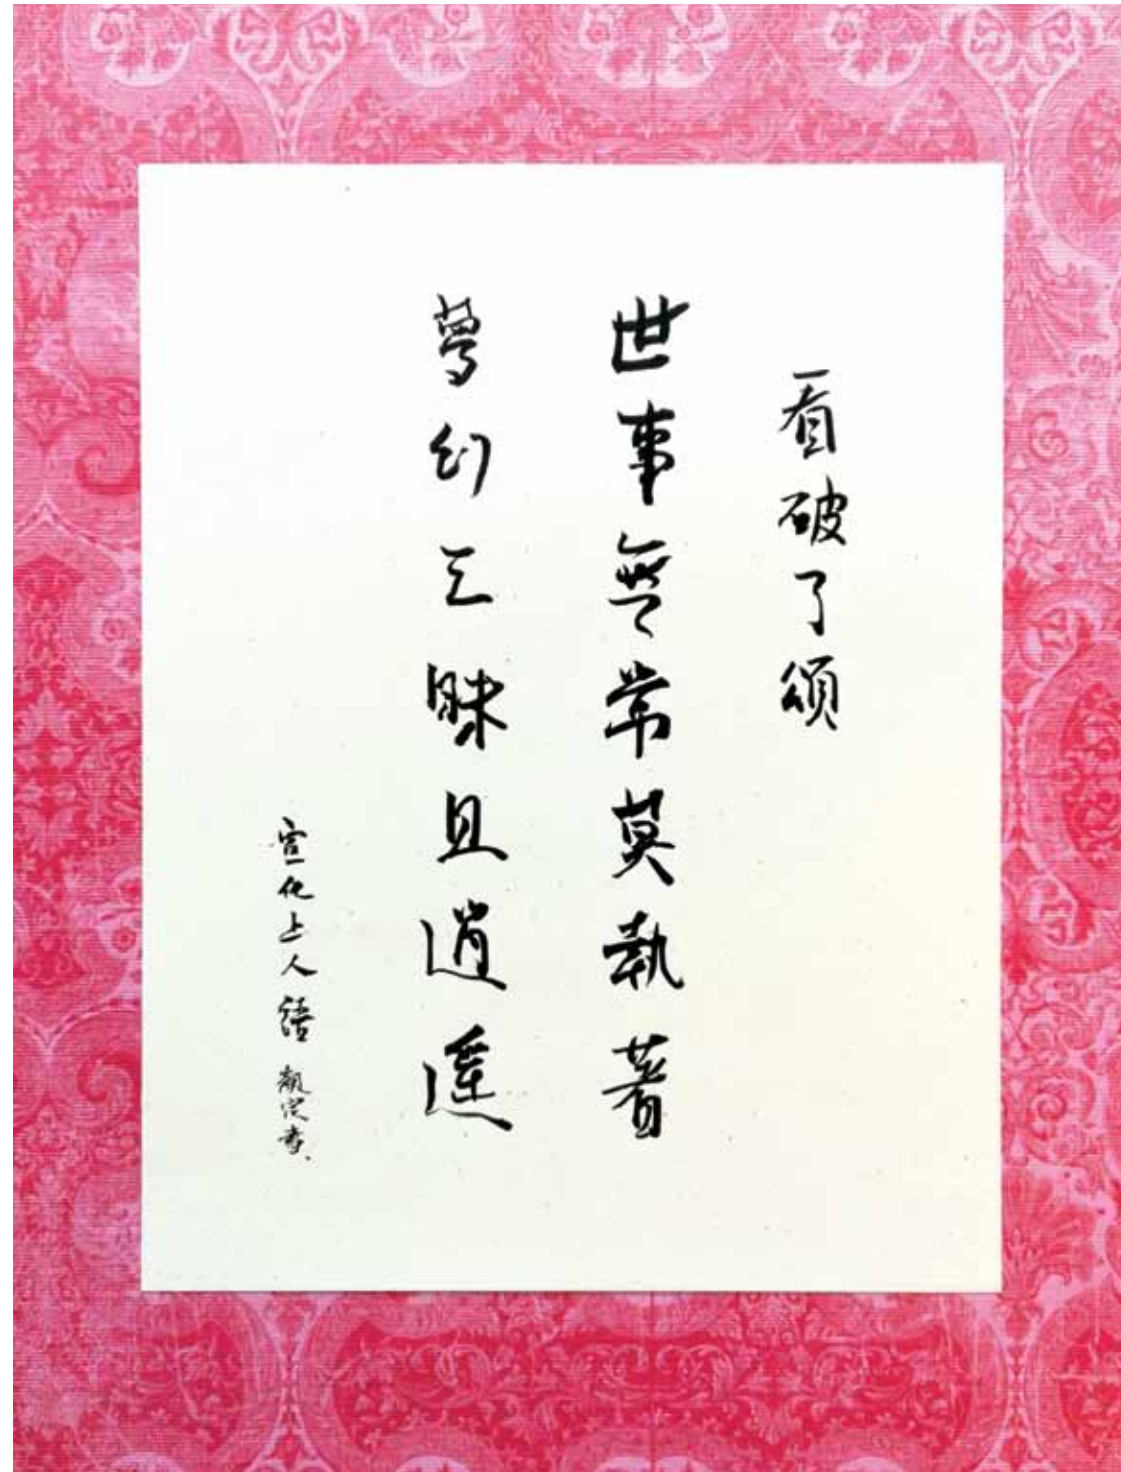 看破了頌
世事無常莫執著
夢幻三昧且逍遙
宣化上人